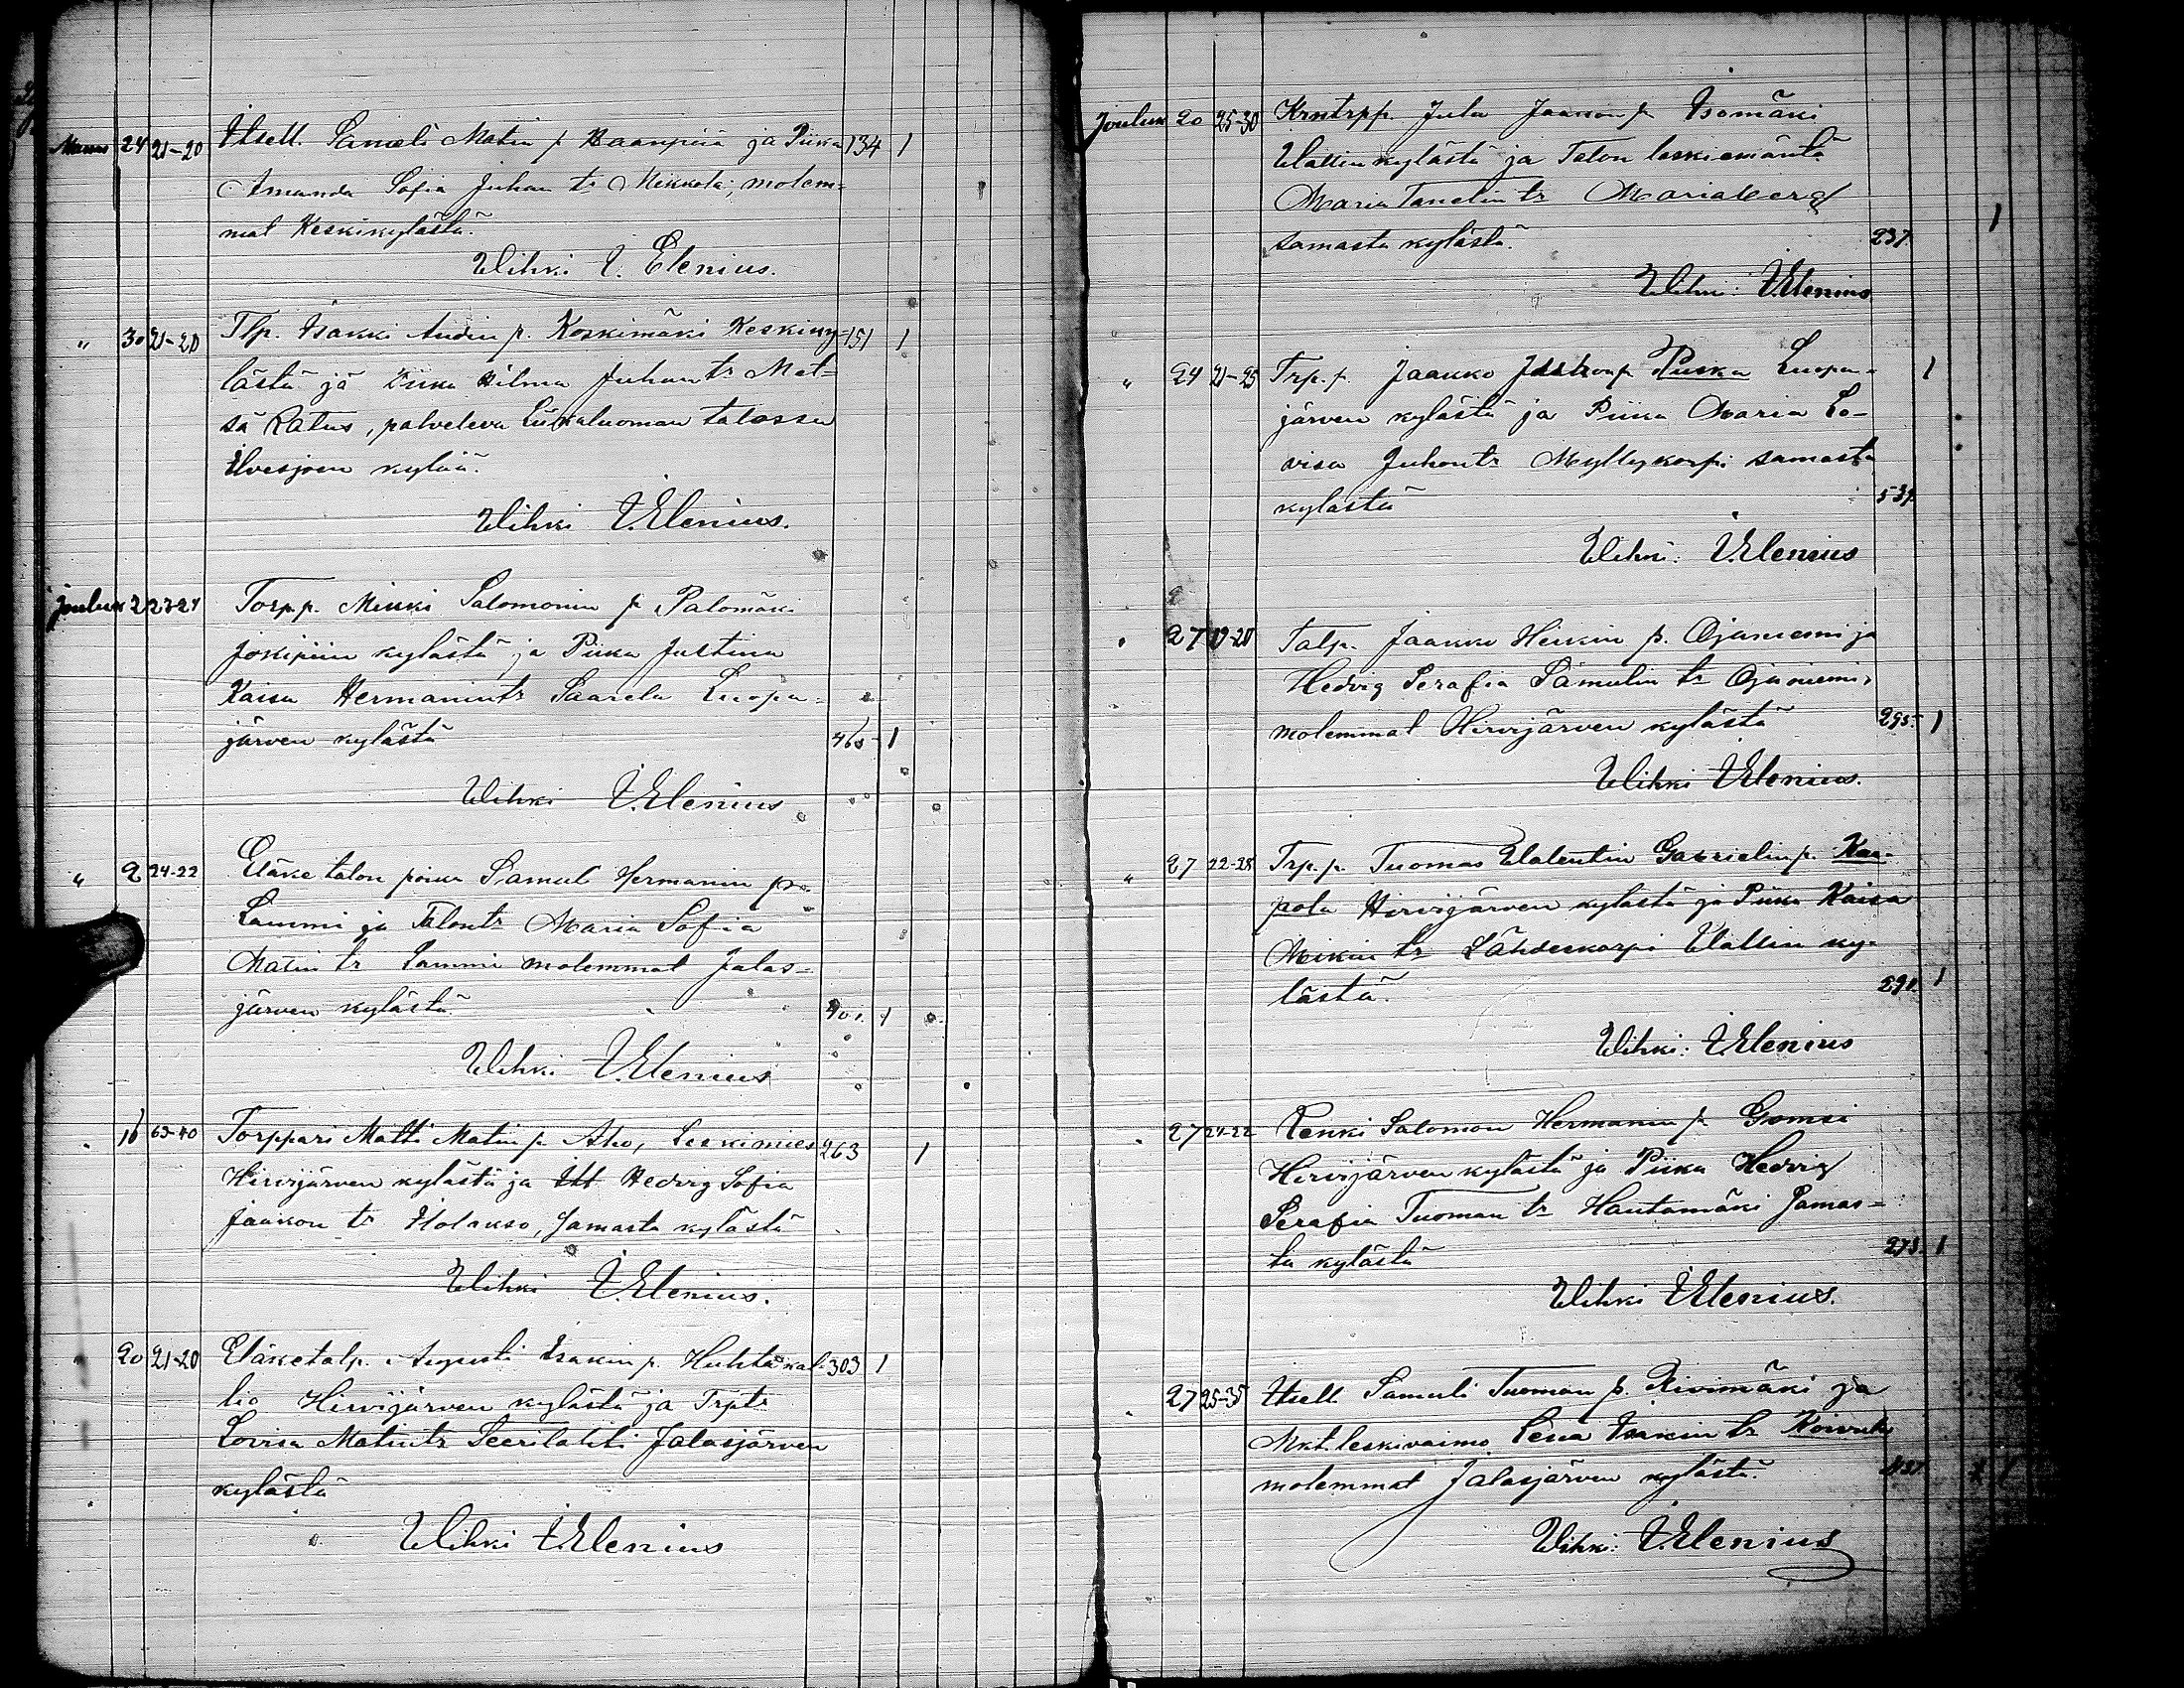 Marras 24 21-20 Itsell. Sameli Matin p Haanpää ja Piika 134 1
Amanda Sofia Juhan tr Mikkola, molem=
mat Keskikylästä.
Wihki I. Elenius.
" 30 21-20 Tlp. Isakki Andin p. Koskimäki Keskiky= 151 1
lästä ja Piika Hilma Juhan tr Met=
sä Ratus, palveleva Liikaluoman talossa
Ilvesjoen kylää.
Wihki I. Elenius.
Jouluk 2 23-24 Torp.p. Mikki Salomonin p Palomäki
Jokipiin kylästä ja Piika Justina
Kaisa Hermanintr Saarela Luopa=
järven kylästä 465 1
Wihki I. Elenius
" 2 24-22 Eläke talon poika Samuli Hermanin p.
Lammi ja Talontr Maria Sofia
Matin tr Lammi molemmat Jalas=
järven kylästä 401. 1
Wihki I. Elenius
" 16 63-40 Torppari Matti Matin p. Aho, Leskimies 263 1
Hirvijärven kylästä ja Itt Hedvig Sofia
Jaakon tr Holakso, Samasta kylästä
Wihki I. Elenius.
" 20 21-20 Eläketalp. Augusti Isakin p. Huhtakal= 303 1
lio Hirvijärven kylästä ja Trptr
Lovisa Matintr Seerilahti Jalasjärven
kylästä
Wihki I. Elenius
Jouluk 20 25-30 Krntrpp. Juha Jaakon p Isomäki
Wallin kylästä ja Talon leskiemäntä
Maria Tanelin tr Mariaberg
samasta kylästä. 237. 1
Wihki: I. Elenius
" 24 21-25 Trp.p. Jaakko p. Piiska Luopa= 1
järven kylästä ja Piika Maria Lo=
visa Juhontr Myllykorpi samasta
kylästä 539.
Wihki: I. Elenius
" 27 19-20 Talp. Jaakko Heikin p. Ojaniemi ja
Hedvig Serafia Samulin tr Ojaniemi,
molemmat Hirvijärven kylästä 295. 1
Wihki I. Elenius.
" 27 22-28 Trp.p. Tuomas Walentin Gabrielin p. Kar=
pola Hirvijärven kylästä ja Piika Kaisa
Mikin tr Lähdeskorpi Wallin ky=
lästä. 291. 1
Wihki: I. Elenius
" 27 24-22 Renki Salomon Hermanin p. Gomsi
Hirvijärven kylästä ja Piika Hedvig
Serafia Tuoman tr Hautamäki Samas=
ta kylästä 273. 1
Wihki I. Elenius.
" 27 25-35 Itsell. Samuli Tuoman p. Rivimäki ja
Mkt. leskivaimo Leena Isakin tr
molemmat Jalasjärven kylästä. 1
Wihki: I. Elenius